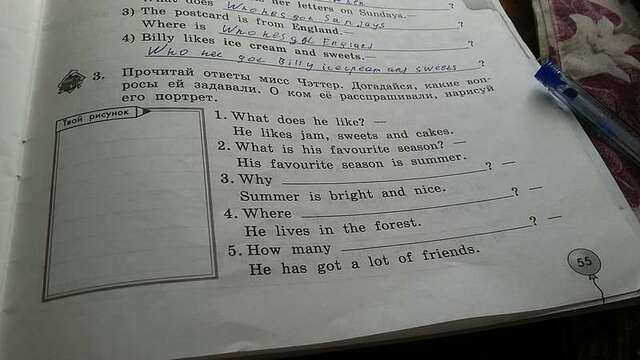 What does her letters on Sundays.—
Who hes got Sandays ?
3) The postcard is from England.—
Where is Who hes got England ?
4) Billy likes ice cream and sweets.—
Who hec got Billy icecream and sweets ?
3. Прочитай ответы мисс Чэттер. Догадайся, какие воп-
росы ей задавали. О ком её расспрашивали, нарисуй
его портрет.
Твой рисунок
1. What does he like? —
He likes jam, sweets and cakes.
2. What is his favourite season? —
His favourite season is summer.
3. Why ? —
Summer is bright and nice.
4. Where ? —
He lives in the forest.
5. How many ? —
He has got a lot of friends.
55